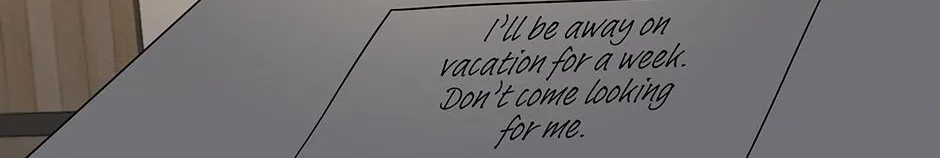 I'll be away on
vacation for a week.
Don't come looking
for me.